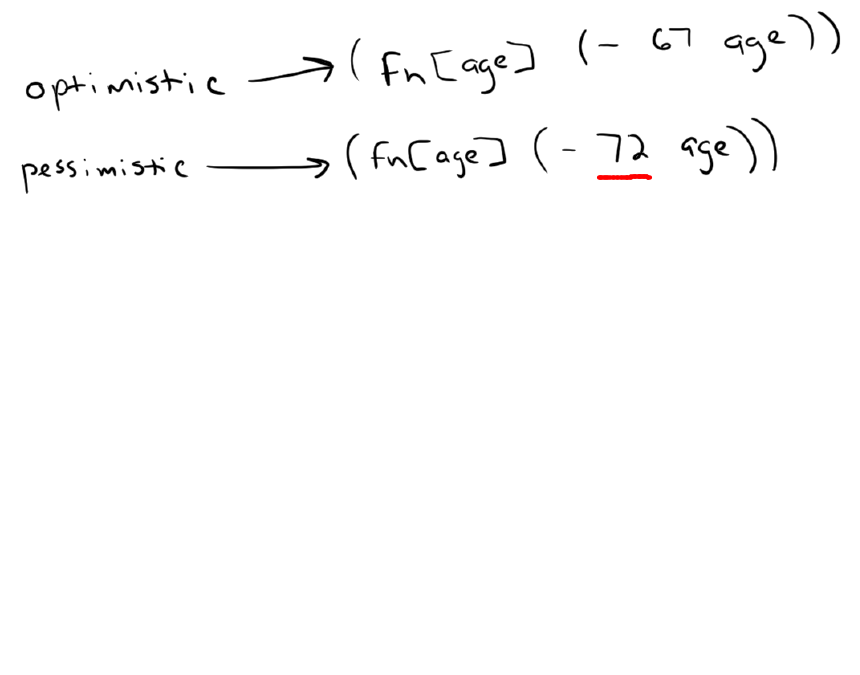 optimistic → (fn[age] (- 67 age))
pessimistic → (fn[age] (- 72 age))